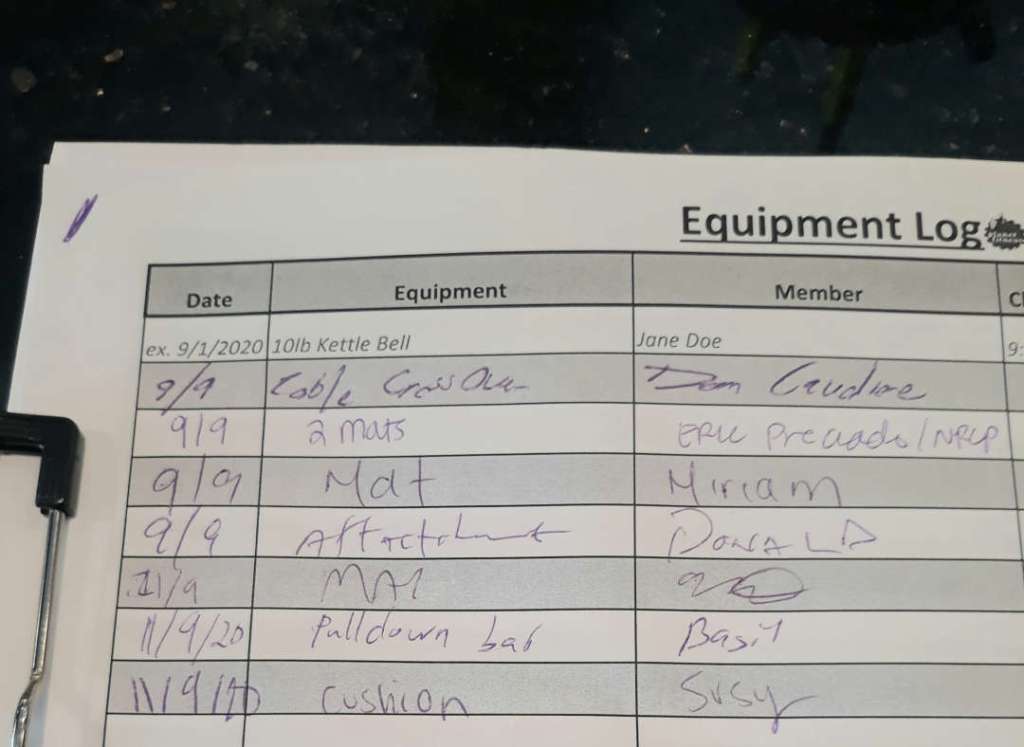 Equipment Log
Date Equipment Member
ex. 9/1/2020 10lb Kettle Bell Jane Doe 9:
9/9 Cable CrossOver
9/9 2 mats ERIC
9/9 Mat Miriam
9/9 Attachment DONALD
11/9 MAT
11/9/20 Pulldown bar Basil
11/9/20 cushion Susy